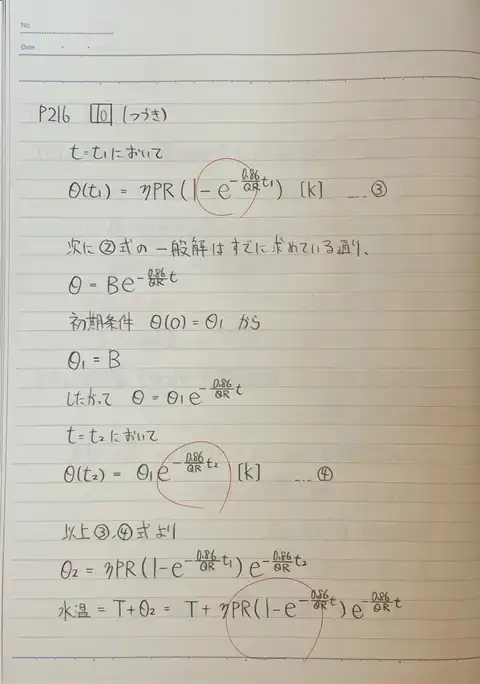 No.
Date
P216 10 (つづき)
t=t₁において
θ(t₁) = ηPR(1-e^{-\frac{0.86}{QR}t₁}) [k] ... ③
次に②式の一般解はすでに求めている通り、
θ = Be^{-\frac{0.86}{QR}t}
初期条件 θ(0) = θ₁ から
θ₁ = B
したがって θ = θ₁e^{-\frac{0.86}{QR}t}
t=t₂において
θ(t₂) = θ₁e^{-\frac{0.86}{QR}t₂} [k] ... ④
以上③,④式より
θ₂ = ηPR(1-e^{-\frac{0.86}{QR}t₁})e^{-\frac{0.86}{QR}t₂}
水温 = T+θ₂ = T+ηPR(1-e^{-\frac{0.86}{QR}t})e^{-\frac{0.86}{QR}t}